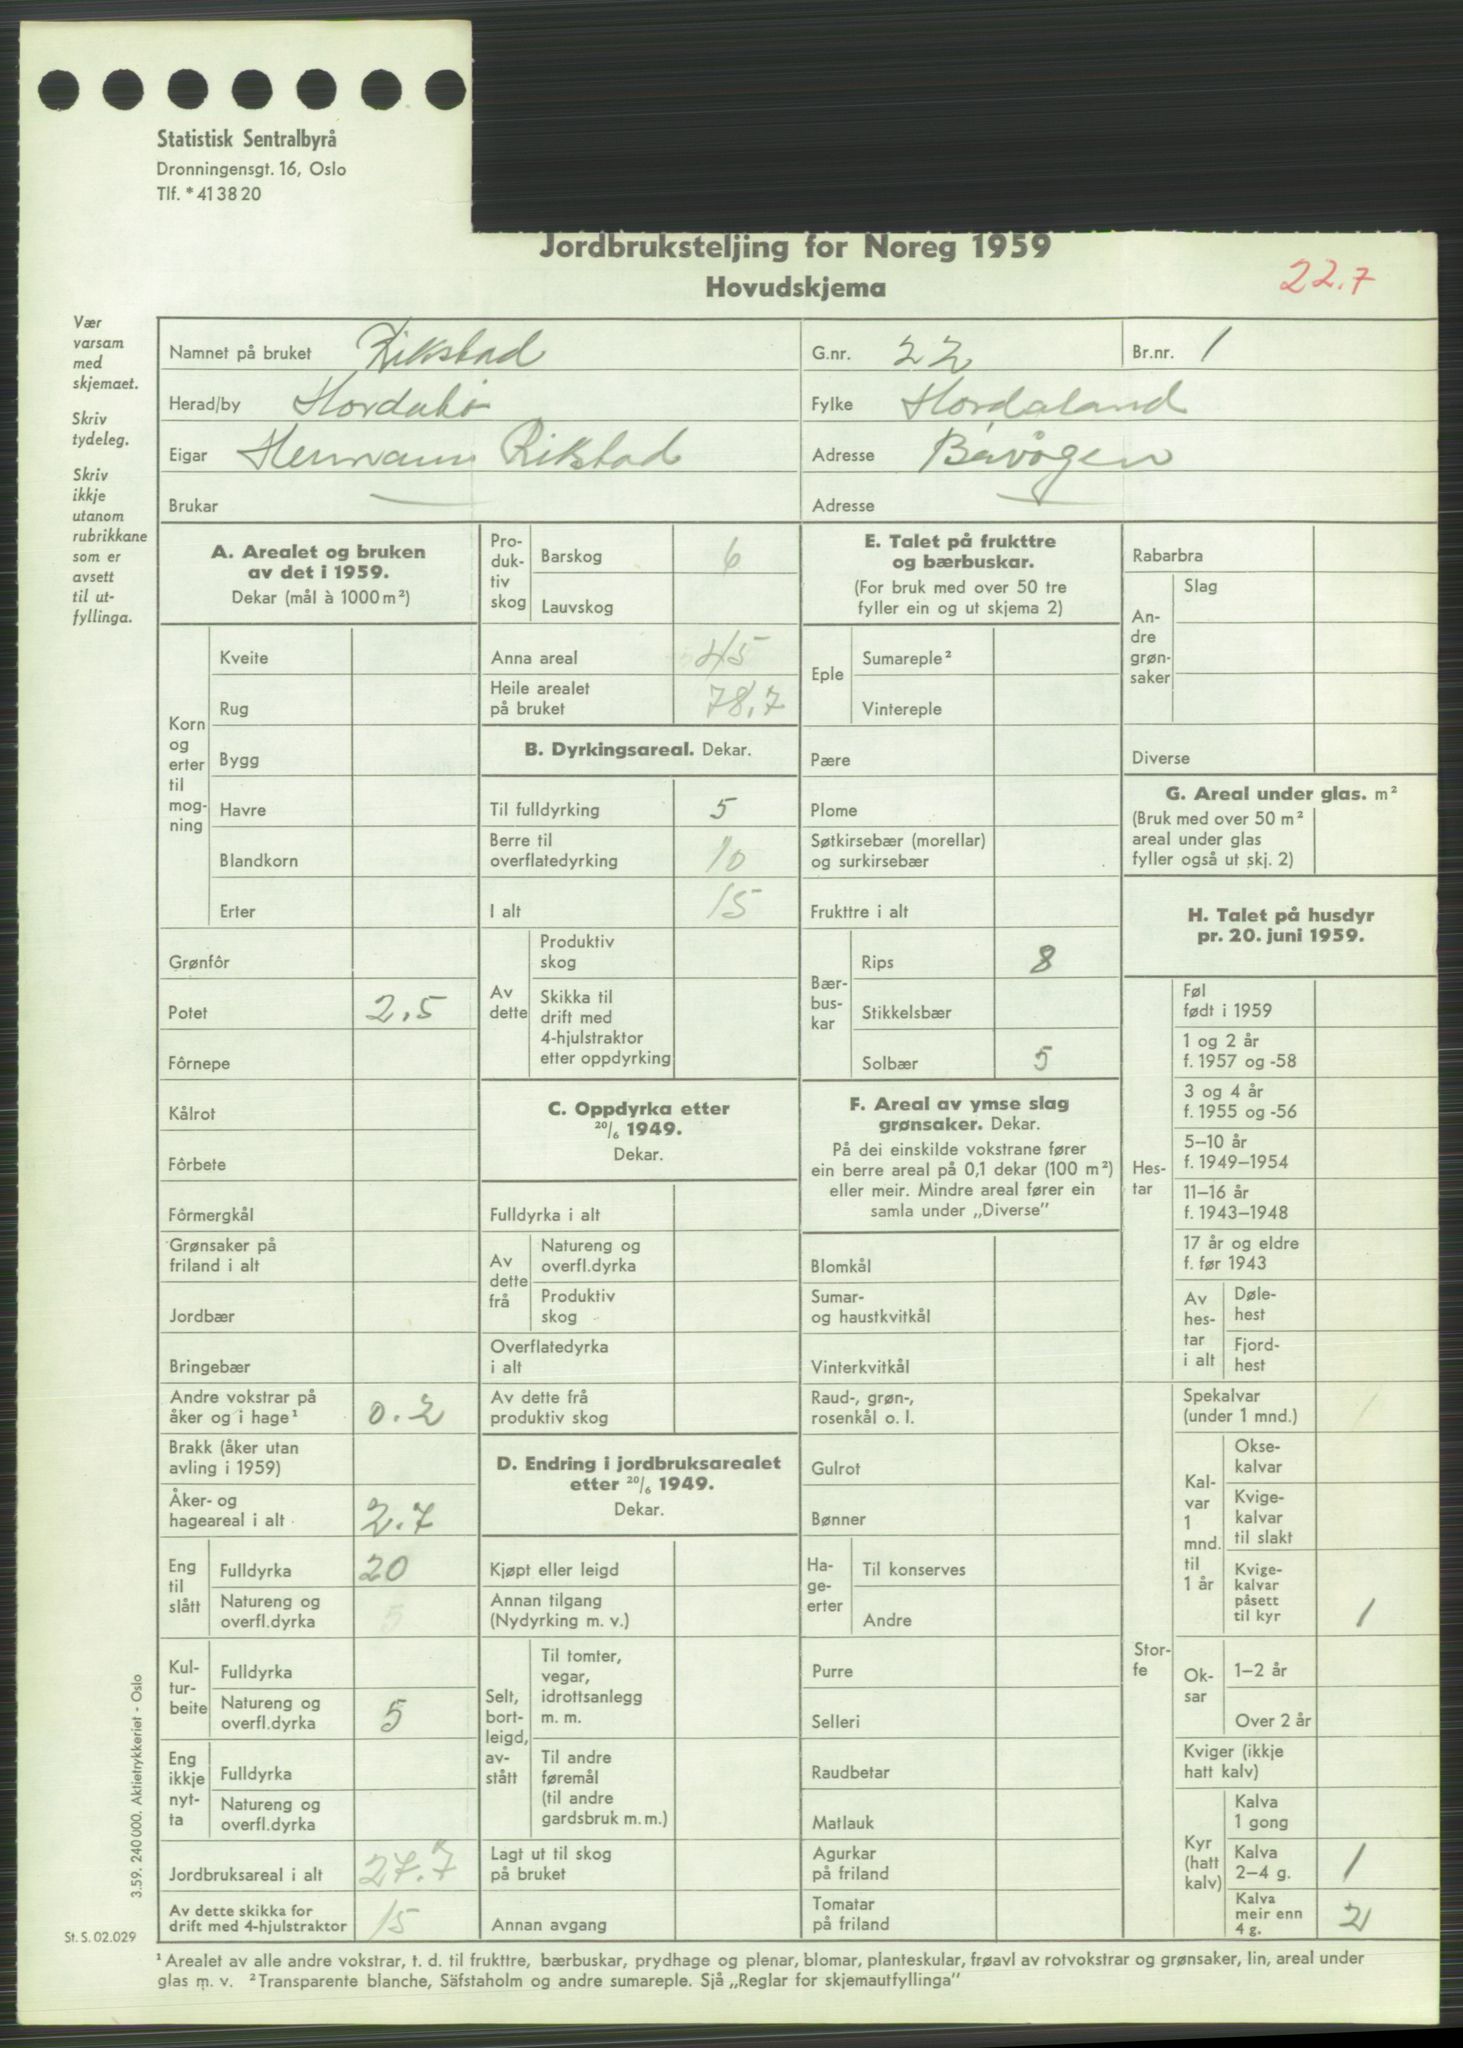 Statistisk Sentralbyrå
Dronningensgt. 16, Oslo
Tlf. * 41 38 20
Jordbruksteljing for Noreg 1959
Hovudskjema
22.7
Vær
varsam
med
skjemaet.
Skriv
tydeleg.
Skriv
ikkje
utanom
rubrikkane
som er
avsett
til ut-
fyllinga.
Namnet på bruket Rikstad G.nr. 22 Br.nr. 1
Herad/by Hordabø Fylke Hordaland
Eigar Hermann Rikstad Adresse Bøvågen
Brukar — Adresse —
A. Arealet og bruken
av det i 1959.
Dekar (mål à 1000 m²)
Korn
og
erter
til
mog-
ning
Kveite
Rug
Bygg
Havre
Blandkorn
Erter
Grønfôr
Potet 2.5
Fôrnepe
Kålrot
Fôrbete
Fôrmergkål
Grønsaker på
friland i alt
Jordbær
Bringebær
Andre vokstrar på
åker og i hage¹ 0.2
Brakk (åker utan
avling i 1959)
Åker- og
hageareal i alt 2.7
Eng
til
slått
Fulldyrka 20
Natureng og
overfl.dyrka 5
Kul-
tur-
beite
Fulldyrka
Natureng og
overfl.dyrka 5
Eng
ikkje
nyt-
ta
Fulldyrka
Natureng og
overfl.dyrka
Jordbruksareal i alt 27.7
Av dette skikka for
drift med 4-hjulstraktor 15
Pro-
duk-
tiv
skog
Barskog 6
Lauvskog
Anna areal 45
Heile arealet
på bruket 78.7
B. Dyrkingsareal. Dekar.
Til fulldyrking 5
Berre til
overflatedyrking 10
I alt 15
Av
dette
Produktiv
skog
Skikka til
drift med
4-hjulstraktor
etter oppdyrking
C. Oppdyrka etter
20/6 1949.
Dekar.
Fulldyrka i alt
Av
dette
frå
Natureng og
overfl.dyrka
Produktiv
skog
Overflatedyrka
i alt
Av dette frå
produktiv skog
D. Endring i jordbruksarealet
etter 20/6 1949.
Dekar.
Kjøpt eller leigd
Annan tilgang
(Nydyrking m. v.)
Selt,
bort-
leigd,
av-
stått
Til tomter,
vegar,
idrottsanlegg
m. m.
Til andre
føremål
(til andre
gardsbruk m. m.)
Lagt ut til skog
på bruket
Annan avgang
E. Talet på frukttre
og bærbuskar.
(For bruk med over 50 tre
fyller ein og ut skjema 2)
Eple
Sumareple²
Vintereple
Pære
Plome
Søtkirsebær (morellar)
og surkirsebær
Frukttre i alt
Bær-
bus-
kar
Rips 8
Stikkelsbær
Solbær 5
F. Areal av ymse slag
grønsaker. Dekar.
På dei einskilde vokstrane fører
ein berre areal på 0,1 dekar (100 m²)
eller meir. Mindre areal fører ein
samla under „Diverse”
Blomkål
Sumar-
og haustkvitkål
Vinterkvitkål
Raud-, grøn-,
rosenkål o. l.
Gulrot
Bønner
Ha-
ge-
erter
Til konserves
Andre
Purre
Selleri
Raudbetar
Matlauk
Agurkar
på friland
Tomatar
på friland
Rabarbra
An-
dre
grøn-
saker
Slag
Diverse
G. Areal under glas. m²
(Bruk med over 50 m²
areal under glas
fyller også ut skj. 2)
H. Talet på husdyr
pr. 20. juni 1959.
Hes-
tar
Føl
født i 1959
1 og 2 år
f. 1957 og -58
3 og 4 år
f. 1955 og -56
5–10 år
f. 1949–1954
11–16 år
f. 1943–1948
17 år og eldre
f. før 1943
Av
hes-
tar
i alt
Døle-
hest
Fjord-
hest
Stor-
fe
Spekalvar
(under 1 mnd.) 1
Kal-
var
1
mnd.
til
1 år
Okse-
kalvar
Kvige-
kalvar
til slakt
Kvige-
kalvar
påsett
til kyr 1
Ok-
sar
1–2 år
Over 2 år
Kviger (ikkje
hatt kalv)
Kyr
(hatt
kalv)
Kalva
1 gong
Kalva
2–4 g. 1
Kalva
meir enn
4 g. 2
3.59. 240 000. Aktietrykkeriet - Oslo
St. S. 02.029
¹ Arealet av alle andre vokstrar, t. d. til frukttre, bærbuskar, prydhage og plenar, blomar, planteskular, frøavl av rotvokstrar og grønsaker, lin, areal under
glas m. v. ² Transparente blanche, Säfstaholm og andre sumareple. Sjå „Reglar for skjemautfyllinga”